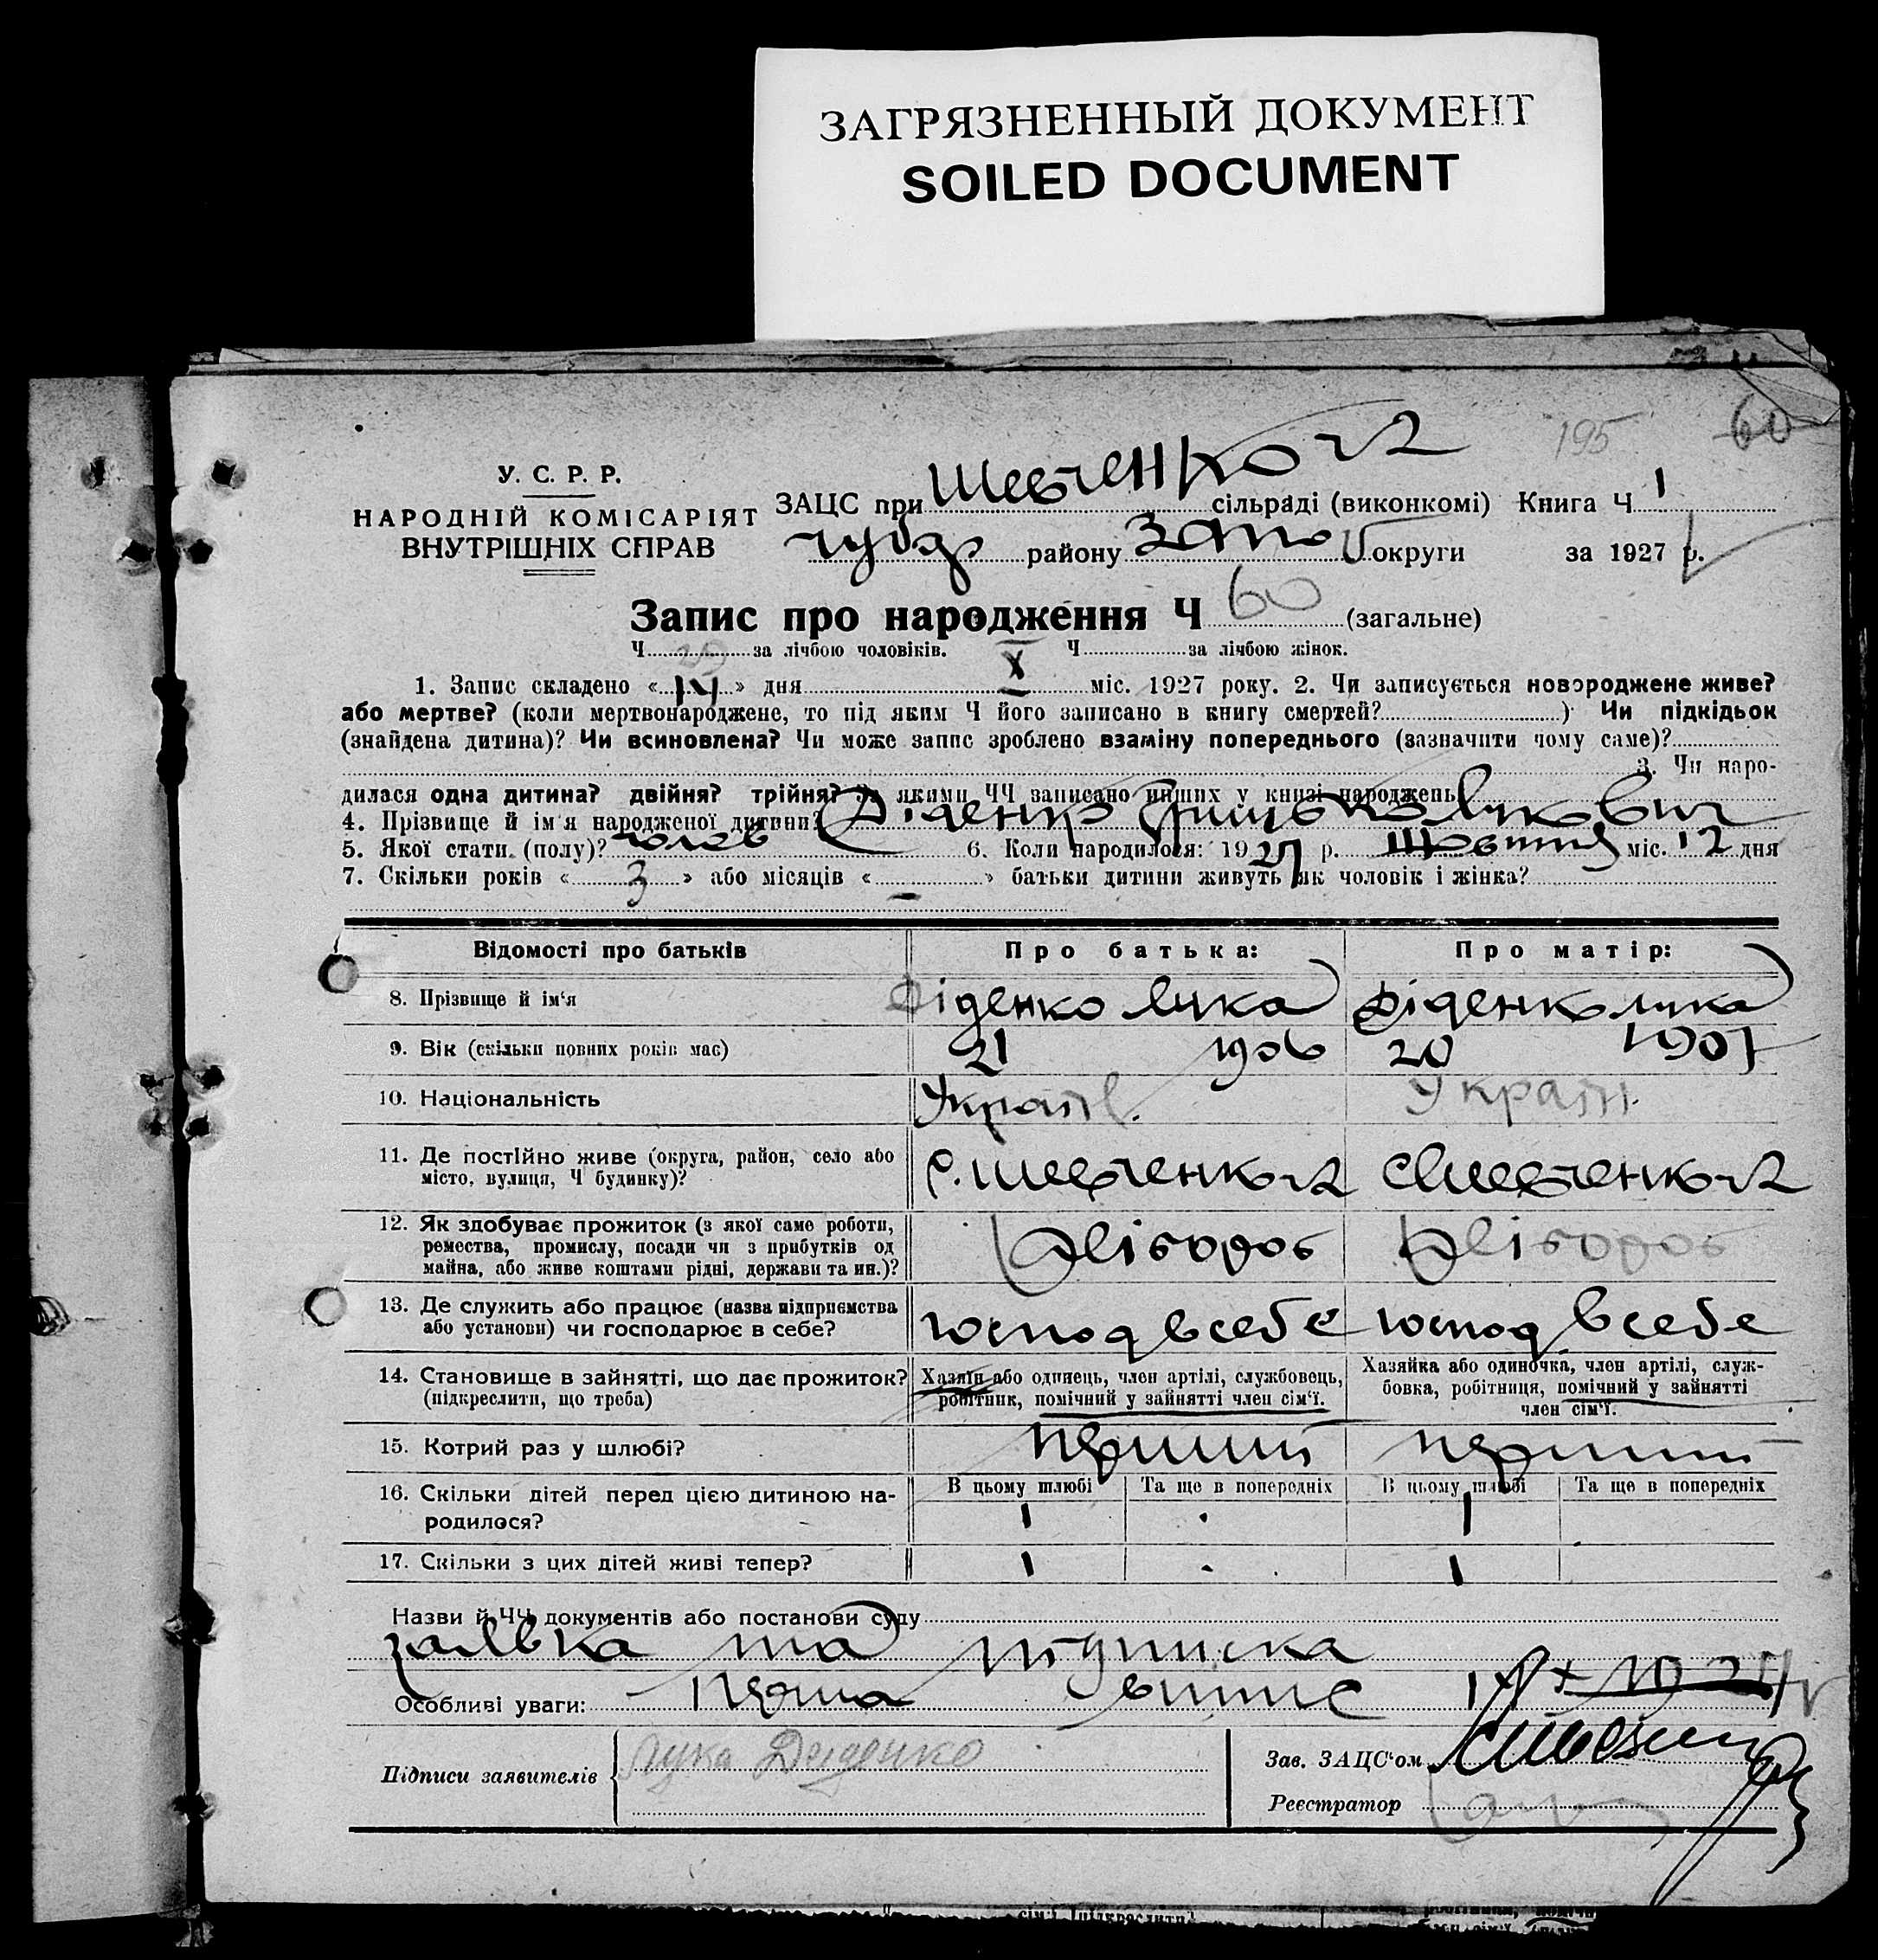 ЗАГРЯЗНЕННЫЙ ДОКУМЕНТ
SOILED DOCUMENT
195 60
У. С. Р. Р.
НАРОДНІЙ КОМІСАРІЯТ
ВНУТРІШНІХ СПРАВ
ЗАЦС при сільраді (виконкомі) Книга Ч 1
району округи за 1927 р.
Запис про народження Ч 60 (загальне)
Ч за лічбою чоловіків. Ч за лічбою жінок.
1. Запис складено « » дня X міс. 1927 року. 2. Чи записується новороджене живе?
або мертве? (коли мертвонароджене, то під яким Ч його записано в книгу смертей? ) Чи підкідьок
(знайдена дитина)? Чи всиновлена? Чи може запис зроблено взаміну попереднього (зазначити чому саме)?
3. Чи наро-
дилася одна дитина? двійня? трійня? За якими ЧЧ записано инших у книзі народжень
4. Прізвище й ім'я народженої дитини? Діденко Грицько Лукович
5. Якої стати (полу)? чолов 6. Коли народилося: 1927 р. Жовтня міс. 12 дня
7. Скільки років « 3 » або місяців « – » батьки дитини живуть як чоловік і жінка?
Відомості про батьків Про батька: Про матір:
8. Прізвище й ім'я Діденко Лука Діденко
9. Вік (скільки повних років має) 21 1906 20 1907
10. Національність Україн. Україн.
11. Де постійно живе (округа, район, село або
місто, вулиця, Ч будинку)?
12. Як здобуває прожиток (з якої саме роботи,
ремества, промислу, посади чи з прибутків од
майна, або живе коштами рідні, держави та ин.)?
Хлібороб Хлібороб
13. Де служить або працює (назва підприємства
або установи) чи господарює в себе?
господ в себе господ в себе
14. Становище в зайнятті, що дає прожиток?
(підкреслити, що треба)
Хазяїн або одинець, член артілі, службовець,
робітник, помічний у зайнятті член сім'ї.
Хазяйка або одиночка, член артілі, служ-
бовка, робітниця, помічний у зайнятті
член сім'ї.
15. Котрий раз у шлюбі? перший перший
16. Скільки дітей перед цією дитиною на-
родилося?
В цьому шлюбі Та ще в попередніх В цьому шлюбі Та ще в попередніх
1 1
17. Скільки з цих дітей живі тепер? 1 1
Назви й ЧЧ документів або постанови суду
заявка та підписка
Особливі уваги: Перша випис
Підписи заявителів Лука Дейденко
Зав. ЗАЦС'ом
Реєстратор